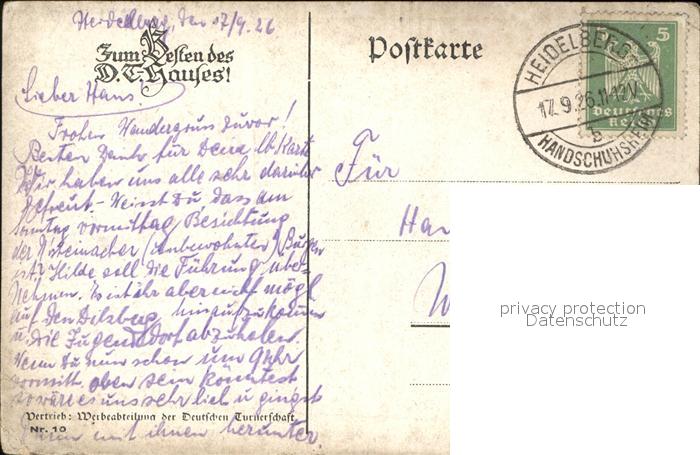 Heidelberg, den 17/9.26
Zum Besten des
D.T. Hauses!
Postkarte
5
HEIDELBERG
17.9.26.11-12V.
b
HANDSCHUHSHEIM
Deutsches
Reich
Lieber Hans!
Frohen Wandergruss zuvor!
Besten Dank für Deine lb. Karte
Wir haben uns alle sehr darüber
gefreut. - Weisst Du, dass am
Sonntag vormittag Besichtung
der Neckarsteinacher (unbewohnten) Burgen
ist? Hilde soll die Führung über-
nehmen. Es ist ihr aber nicht mögl.
auf den Dilsberg hinaufzukommen
u. die Jugend dort abzuholen.
Wenn Du nun schon um 9 Uhr
vormitt. oben sein könntest
so wäre es uns sehr lieb u gingst
dann mit ihnen herunter.
Für
Ha
W
privacy protection
Datenschutz
Vertrieb: Werbeabteilung der Deutschen Turnerschaft
Nr. 10